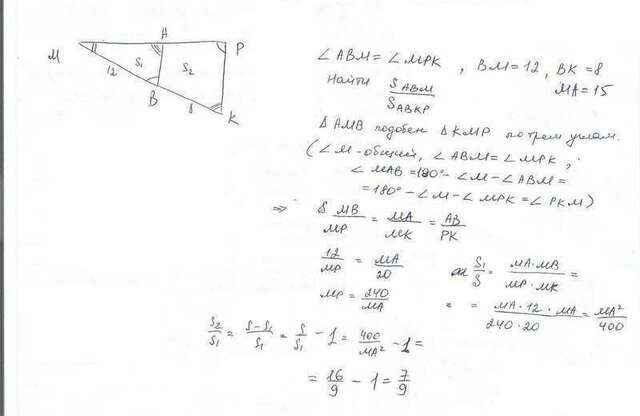 M A P
S₁ S₂
12 B 8 K
∠ABM = ∠MPK , BM = 12, BK = 8
Найти S_ABM / S_ABKP MA = 15
Δ AMB подобен Δ KMP по трем углам.
(∠M - общий, ∠ABM = ∠MPK,
∠MAB = 180° - ∠M - ∠ABM =
= 180° - ∠M - ∠MPK = ∠PKM)
⇒ MB/MP = MA/MK = AB/PK
12/MP = MA/20 S₁/S = MA·MB / MP·MK =
MP = 240/MA = = MA·12·MA / 240·20 = MA²/400
S₂/S₁ = S-S₁/S₁ = S/S₁ - 1 = 400/MA² - 1 =
= 16/9 - 1 = 7/9